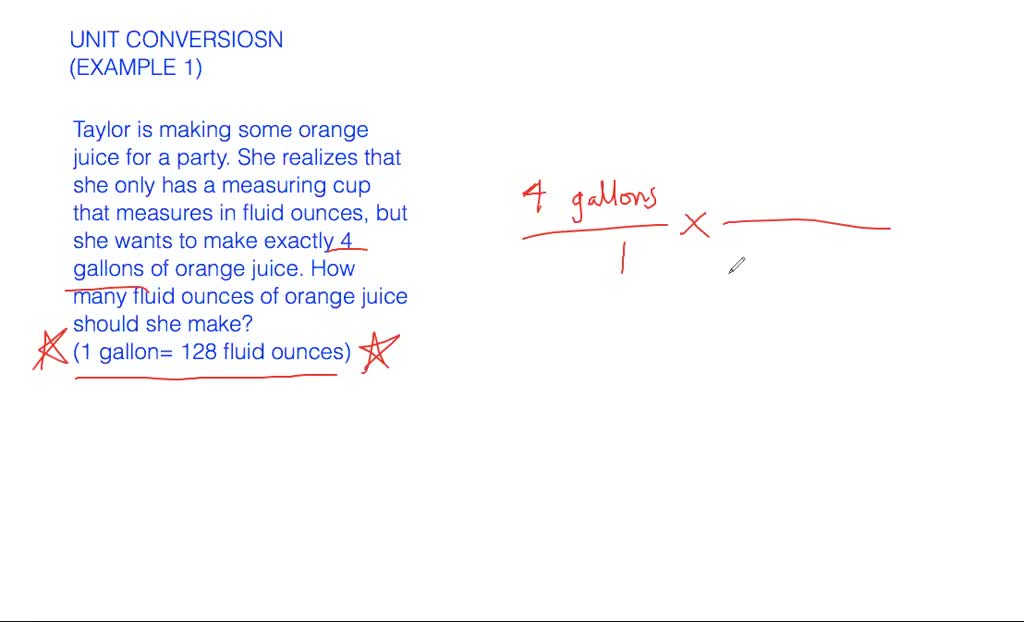 UNIT CONVERSIOSN
(EXAMPLE 1)
Taylor is making some orange
juice for a party. She realizes that
she only has a measuring cup
that measures in fluid ounces, but
she wants to make exactly 4
gallons of orange juice. How
many fluid ounces of orange juice
should she make?
(1 gallon= 128 fluid ounces)
4 gallons
×
1